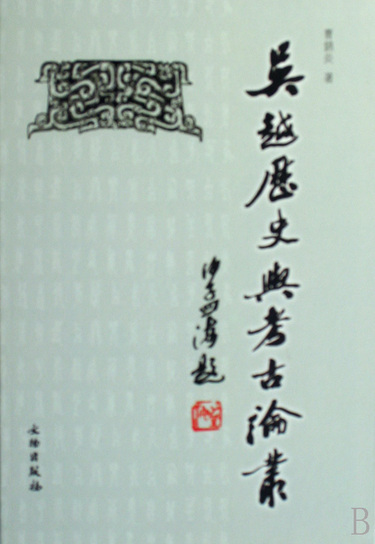 曹錦炎 著
吳越歷史與考古論叢
沙孟海題
文物出版社
B